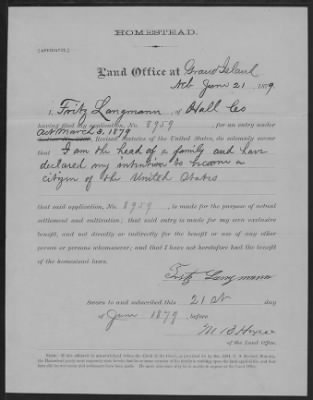 HOMESTEAD.
[AFFIDAVIT.]
Land Office at Grand Island
Neb June 21, 1879.
I, Fritz Langmann, of Hall Co
having filed my application, No. 8959, for an entry under
Act March 3, 1879
Revised Statutes of the United States, do solemnly swear
that I am the head of a family and have
declared my intention to become a
citizen of the United States
that said application, No. 8959, is made for the purpose of actual
settlement and cultivation; that said entry is made for my own exclusive
benefit, and not directly or indirectly for the benefit or use of any other
person or persons whomsoever; and that I have not heretofore had the benefit
of the homestead laws.
Fritz Langmann
Sworn to and subscribed this 21st day
of June 1879, before
M B
of the Land Office.